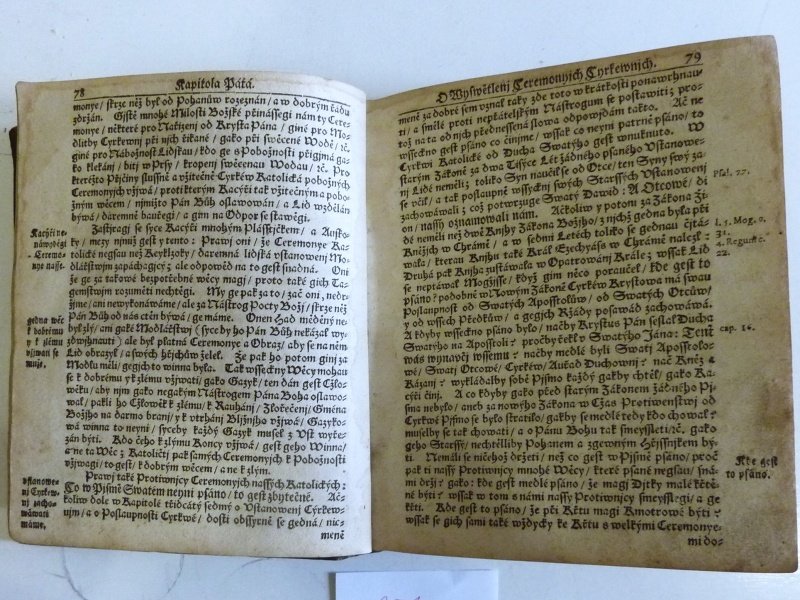 78
Kapitola Pátá.
monye / skrze něž byl od Pohanůw rozeznán / a w dobrým řádu
zdržán. Gistě mnohé Milosti Božské přinássegj nám ty Cere-
monye / některé pro Nařjzenj od Krysta Pána / giné pro Mo-
dlitby Cyrkewnj při nich řjkané / gako při swěcené Wodě / rč.
giné pro Nábožnost Lidskau / kdo ge s Pobožnostj přigjmá ga-
ko klekánj / bitj w Prsy / kropenj swěcenau Wodau / rč. Pro
kteréžto Přjčiny slussné a vžitečné Cyrkew Katolická pobožných
Ceremonygj vžjwá / proti kterým Kacýři tak vžitečným a pobo-
žným wěcem / ginižto Pán Bůh oslawowán / a Lid wzdělán
býwá / daremně baučegj / a gim na Odpor se stawěgj.
Zastjragj se syce Kacýři mnohým Plásstjkem / a Austo-
ky / mezy nimiž gest y tento: Prawj oni / že Ceremonye Ka-
tolické negsau než Reyklostky / daremná lidská vstanowenj Mo-
dlářstwjm zapáchagjcý; ale odpowěd na to gest snadná. Oni
že ge za takowé bezpotřebné wěcy magj / proto také gich Ta-
gemstwjm rozuměti nechtěgj. My ge pak za to / zač oni / nedr-
žjme / ani newykonáwáme / ale za Nástrog Pocty Božj / skrze něž
Pán Bůh od nás ctěn býwá / ge máme. Onen Had měděný ne-
byl zlý / ani gaké Modlářstwj (syce by ho Pán Bůh nekázal wy-
zdwihnauti) ale byl platná Ceremonye a Obraz / aby se na něm
Lid obrazyl / a swých hřjchůw želel. Že pak ho potom ginj za
Modlu měli / gegich to winna byla. Tak wssecky Wěcy mohau
se k dobrému y k zlému vžjwati / gako Gazyk / ten dán gest Člo-
wěku / aby njm gako negakým Nástrogem Pána Boha oslawo-
wal / pakli ho Člowěk k zlému / k Rauhánj / Zlořečenj / Gména
Božjho na darmo branj / y k vtrhánj Bližnjho vžjwá / Gazyko-
wá winna to neynj / syceby každý Gazyk musel z Vst wyře-
zán býti. Kdo čeho k zlýmu Koncy vžjwá / gest geho Winna /
a ne ta Wěc; Katoličtj pak samých Ceremonygj k Pobožnosti
vžjwagj / to gest / k dobrým wěcem / a ne k zlým.
Prawj také Protiwnjcy Ceremonygj nassých Katolických:
Co w Pjsmě Swatém neynj psáno / to gest zbytečné. Ač-
koliw dole w Kapitole třidcátý sedmý o Vstanowenj Cyrkew-
njm / a o Poslaupnosti Cyrkwě / dosti obssyrně se gedná / nic-
meně
Kacýři ne-
náwiděgj
Ceremo-
nye nasse.
gedna wěc
k dobrému
y k zlému
vžjwati se
může.
vstanowe-
nj Cyrkew-
nj zacho-
wáwati
máme.
O Wyswětlenj Ceremonyjch Cyrkewnjch.
79
meně za dobré sem vznal taky zde toto w krátkosti ponawrhnau-
ti / a smělé proti nepřátelským Nástrogum se postawiti z pro-
tož na ta od nich přednessená slowa odpowjdám takto. Ač ne
wssechno gest psáno co činjme / wssak co neynj patrně psáno / to
Cyrkwi Katolické od Ducha Swatýho gest wnuknuto. W
starým Zákoně za dwa Tisýce Lét žádného psaného Vstanowe-
nj Lidé neměli z toliko Syn naučil se od Otce / ten Syny swý za-
se včil / a tak posaupně wssyckni swých Starssých Vstanowenj
zachowáwali z což potwrzuge Swatý Dawid: A Otcowé / di
on / nassý oznamowali nám. Ačkoliw y potom za Zákona Ži-
dé neměli než dwě Knihy Zákona Božjho / z nichž gedna byla při
Kněžjch w Chrámě / a w sedmi Letech toliko se gednau čjtá-
wala / kterau Knihu také Král Ezechyáss w Chrámě nalezl:
Druhá pak Kniha zustáwala w Opatrowánj Krále z wssak Lid
se neptáwal Mogžjsse / když gim něco poraučel / kde gest to
psáno? podobně w Nowým Zákoně Cyrkew Krystowa má swau
Posaupnost od Swatých Apposstolůw / od Swatých Otcůw /
y od wssech Předkůw / a gegich Řády posawád zachowáwá.
A kdyby wssechno psáno bylo / nač by Krystus Pán seslal Ducha
Swatýho na Apposstoli? proč by řekl v Swatýho Jána: Tent
wás wynaučj wssemu? nač by medle byli Swatj Apposstolo-
wé / Swatj Otcowé / Cyrkew / Auřad Duchownj? nač Kněz a
Kázanj? wykládalby sobě Pjsmo každý gakby chtěl / gako Ka-
cýři činj. A co kdyby gako před starým Zákonem žádného Pj-
sma nebylo / aneb za nowýho Zákona w Čas Protiwenstwj od
Cyrkwě Pjsmo se bylo stratilo / gakby se medle tedy kdo chowal?
muselby se tak chowati / a o Pánu Bohu tak smeyssleti / rč. gako
geho Starssý / nechtělliby Pohanem a zgewným Hřjssnjkem bý-
ti. Nemáli se ničehož držeti / než co gest w Pjsmě psáno / proč
pak ti nassý Protiwnjcy mnohé Wěcy / které psané negsau / sná-
mi držj? gako: kde gest medle psáno / že magj Djtky malé křtě-
né býti? wssak w tom s námi nassý Protiwnjcy smeyssegj / a ge
křtj. Kde gest to psáno / že při Křtu magj Kmotrowé býti?
wssak se gich sami také wždycky ke Křtu s welkými Ceremonye-
mi do-
Psal. 77.
4. Regum. c.
22.
cap. 16.
Kde gest
to psáno.